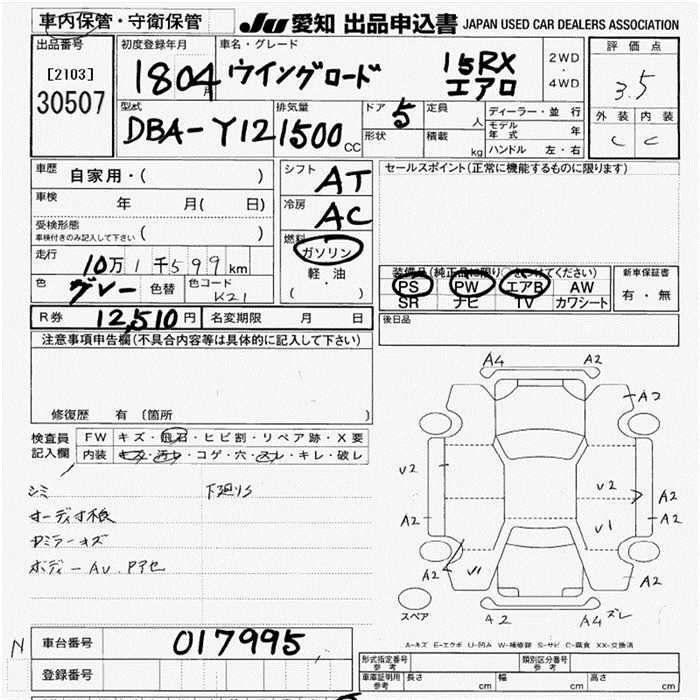 車内保管・守衛保管 JU 愛知 出品申込書 JAPAN USED CAR DEALERS ASSOCIATION
出品番号 初度登録年月 車名・グレード 評価点
[2103] 1804月 ウイングロード 15RX エアロ 2WD・4WD 3.5
30507 型式 排気量 ドア 定員 ディーラー・並行 外装 内装
DBA-Y12 1500CC 5 人 モデル年式 年 C C
形状 積載 kg ハンドル 左・右
車歴 自家用・( ) シフト AT セールスポイント(正常に機能するものに限ります)
車検 年 月( 日) 冷房 AC
受検形態 ( )
車検付きのみ記入して下さい
燃料 ガソリン
走行 10万1千599km 軽油
( )
装備品(純正品に限り をつけてください) 新車保証書
色 グレー 色替 色コード K21 PS PW エアB AW 有・無
SR ナビ TV カワシート
R券 12,510円 名変期限 月 日 後日品
注意事項申告欄(不具合内容等は具体的に記入して下さい)
修復歴 有 〔箇所 〕
検査員記入欄 FW キズ・飛石・ヒビ割・リペア跡・X要
内装 キズ・汚レ・コゲ・穴・スレ・キレ・破レ
シミ 下廻りS
オーディオ不良
Rミラーキズ
ボディーAU.Pアセ
A4 A2
A2
V2 V2 A2
A2 V1 A2
A2 V1 A2
スペア A2 A4 ズレ
A-キズ E-エクボ U-凹み W-補修跡 S-サビ C-腐食 XX-交換済
N 車台番号 017995
登録番号
形式指定番号 参考 類別区分番号 参考
車庫証明用 参考 長さ cm 幅 cm 高さ cm